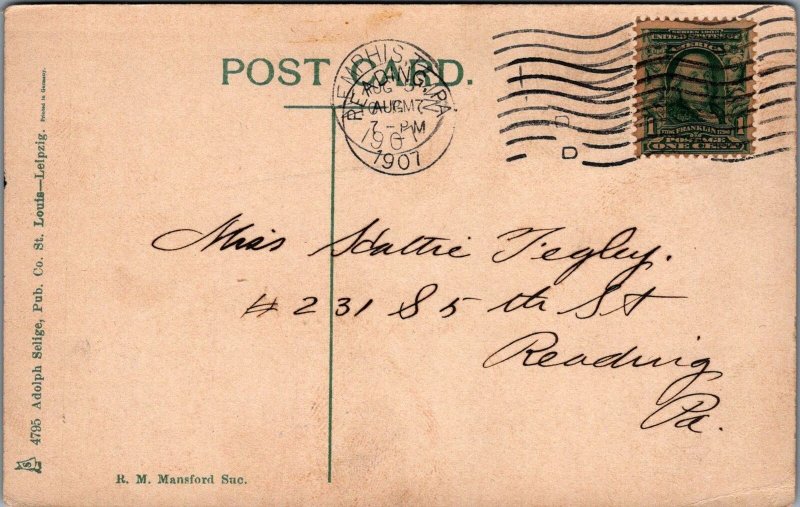 POST CARD.
MEMPHIS, TENN.
READING, PA
AUG
7 - PM
1907
SERIES 1902
UNITED STATES OF
AMERICA
FRANKLIN
POSTAGE
1 ONE CENT 1
D
Miss Hattie Tegley.
# 231 S 5 th St
Reading
Pa.
4795 Adolph Selige, Pub. Co. St. Louis—Leipzig. Printed in Germany.
S
R. M. Mansford Suc.